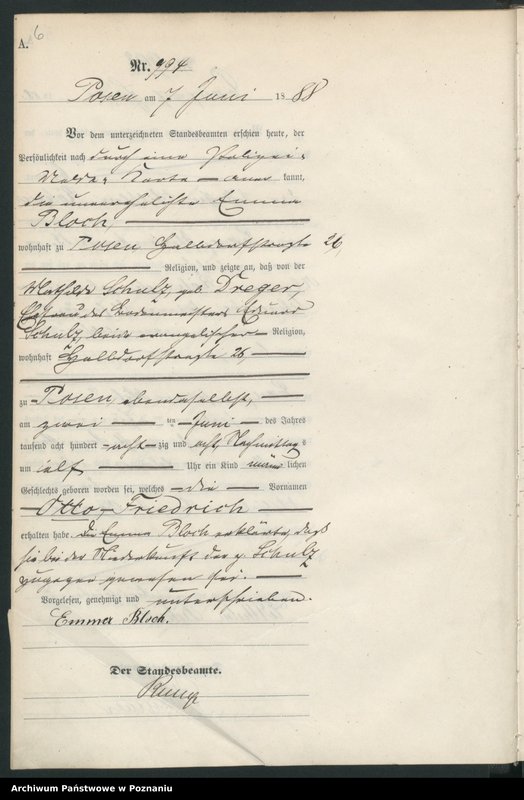 A. 6
Nr. 994
Posen am 7 Juni 1888
Vor dem unterzeichneten Standesbeamten erschien heute, der
Persönlichkeit nach durch eine Polizei-
Melde-Karte aner kannt,
die unverehelichte Emma
Bloch,
wohnhaft zu Posen Halbdorfstraße 26
Religion, und zeigte an, daß von der
Mathilde Schulz geb. Dreger,
Ehefrau des Bademeisters Eduard
Schulz beide evangelischer Religion,
wohnhaft Halbdorfstraße 26,
zu Posen ebendaselbst,
am zwei ten Juni des Jahres
tausend acht hundert acht zig und acht, Nachmittag s
um elf Uhr ein Kind männ lichen
Geschlechts geboren worden sei, welches die Vornamen
Otto Friedrich
erhalten habe. Die Emma Bloch erklärte, daß
sie bei der Niederkunft der p. Schulz
zugegen gewesen sei.
Vorgelesen, genehmigt und unterschrieben.
Emma Bloch.
Der Standesbeamte.
Archiwum Państwowe w Poznaniu